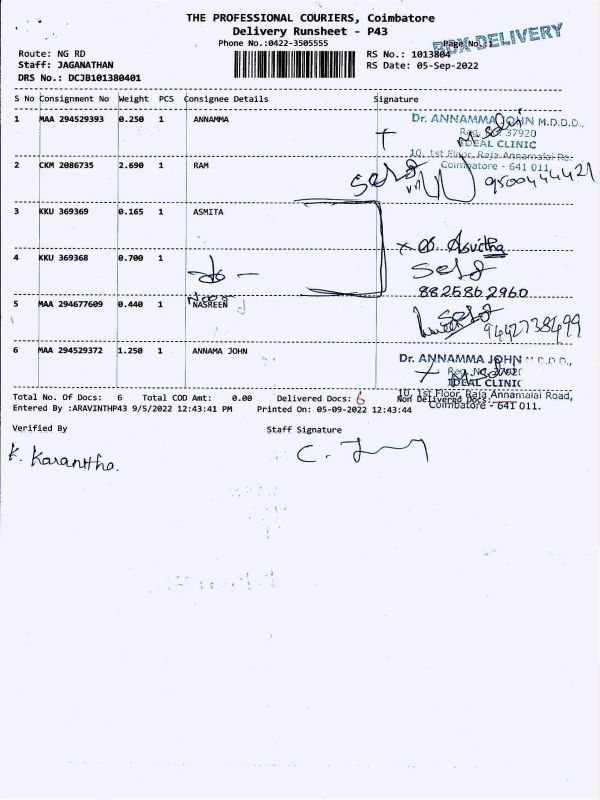 THE PROFESSIONAL COURIERS, Coimbatore
Delivery Runsheet - P43
Phone No.:0422-3505555
Page No.:1
BOX DELIVERY
Route: NG RD
RS No.: 1013804
Staff: JAGANATHAN
RS Date: 05-Sep-2022
DRS No.: DCJB101380401
S No Consignment No Weight PCS Consignee Details Signature
1 MAA 294529393 0.250 1 ANNAMMA
Dr. ANNAMMA JOHN M.D.D.D.,
Reg. 37920
IDEAL CLINIC
10, 1st Floor, Raja Annamalai Ro
Coimbatore - 641 011
2 CKM 2086735 2.690 1 RAM
Self
9500444421
3 KKU 369369 0.165 1 ASMITA
x Asvitha
4 KKU 369368 0.700 1
do -
Self
8825862960
5 MAA 294677609 0.440 1 NASREEN
Self
9442738499
6 MAA 294529372 1.250 1 ANNAMA JOHN
Dr. ANNAMMA JOHN M.D.D.D.,
Reg. No.
IDEAL CLINIC
10, 1st Floor, Raja Annamalai Road,
Coimbatore - 641 011.
Total No. Of Docs: 6 Total COD Amt: 0.00 Delivered Docs: 6 Non Delivered Docs:
Entered By :ARAVINTHP43 9/5/2022 12:43:41 PM Printed On: 05-09-2022 12:43:44
Verified By Staff Signature